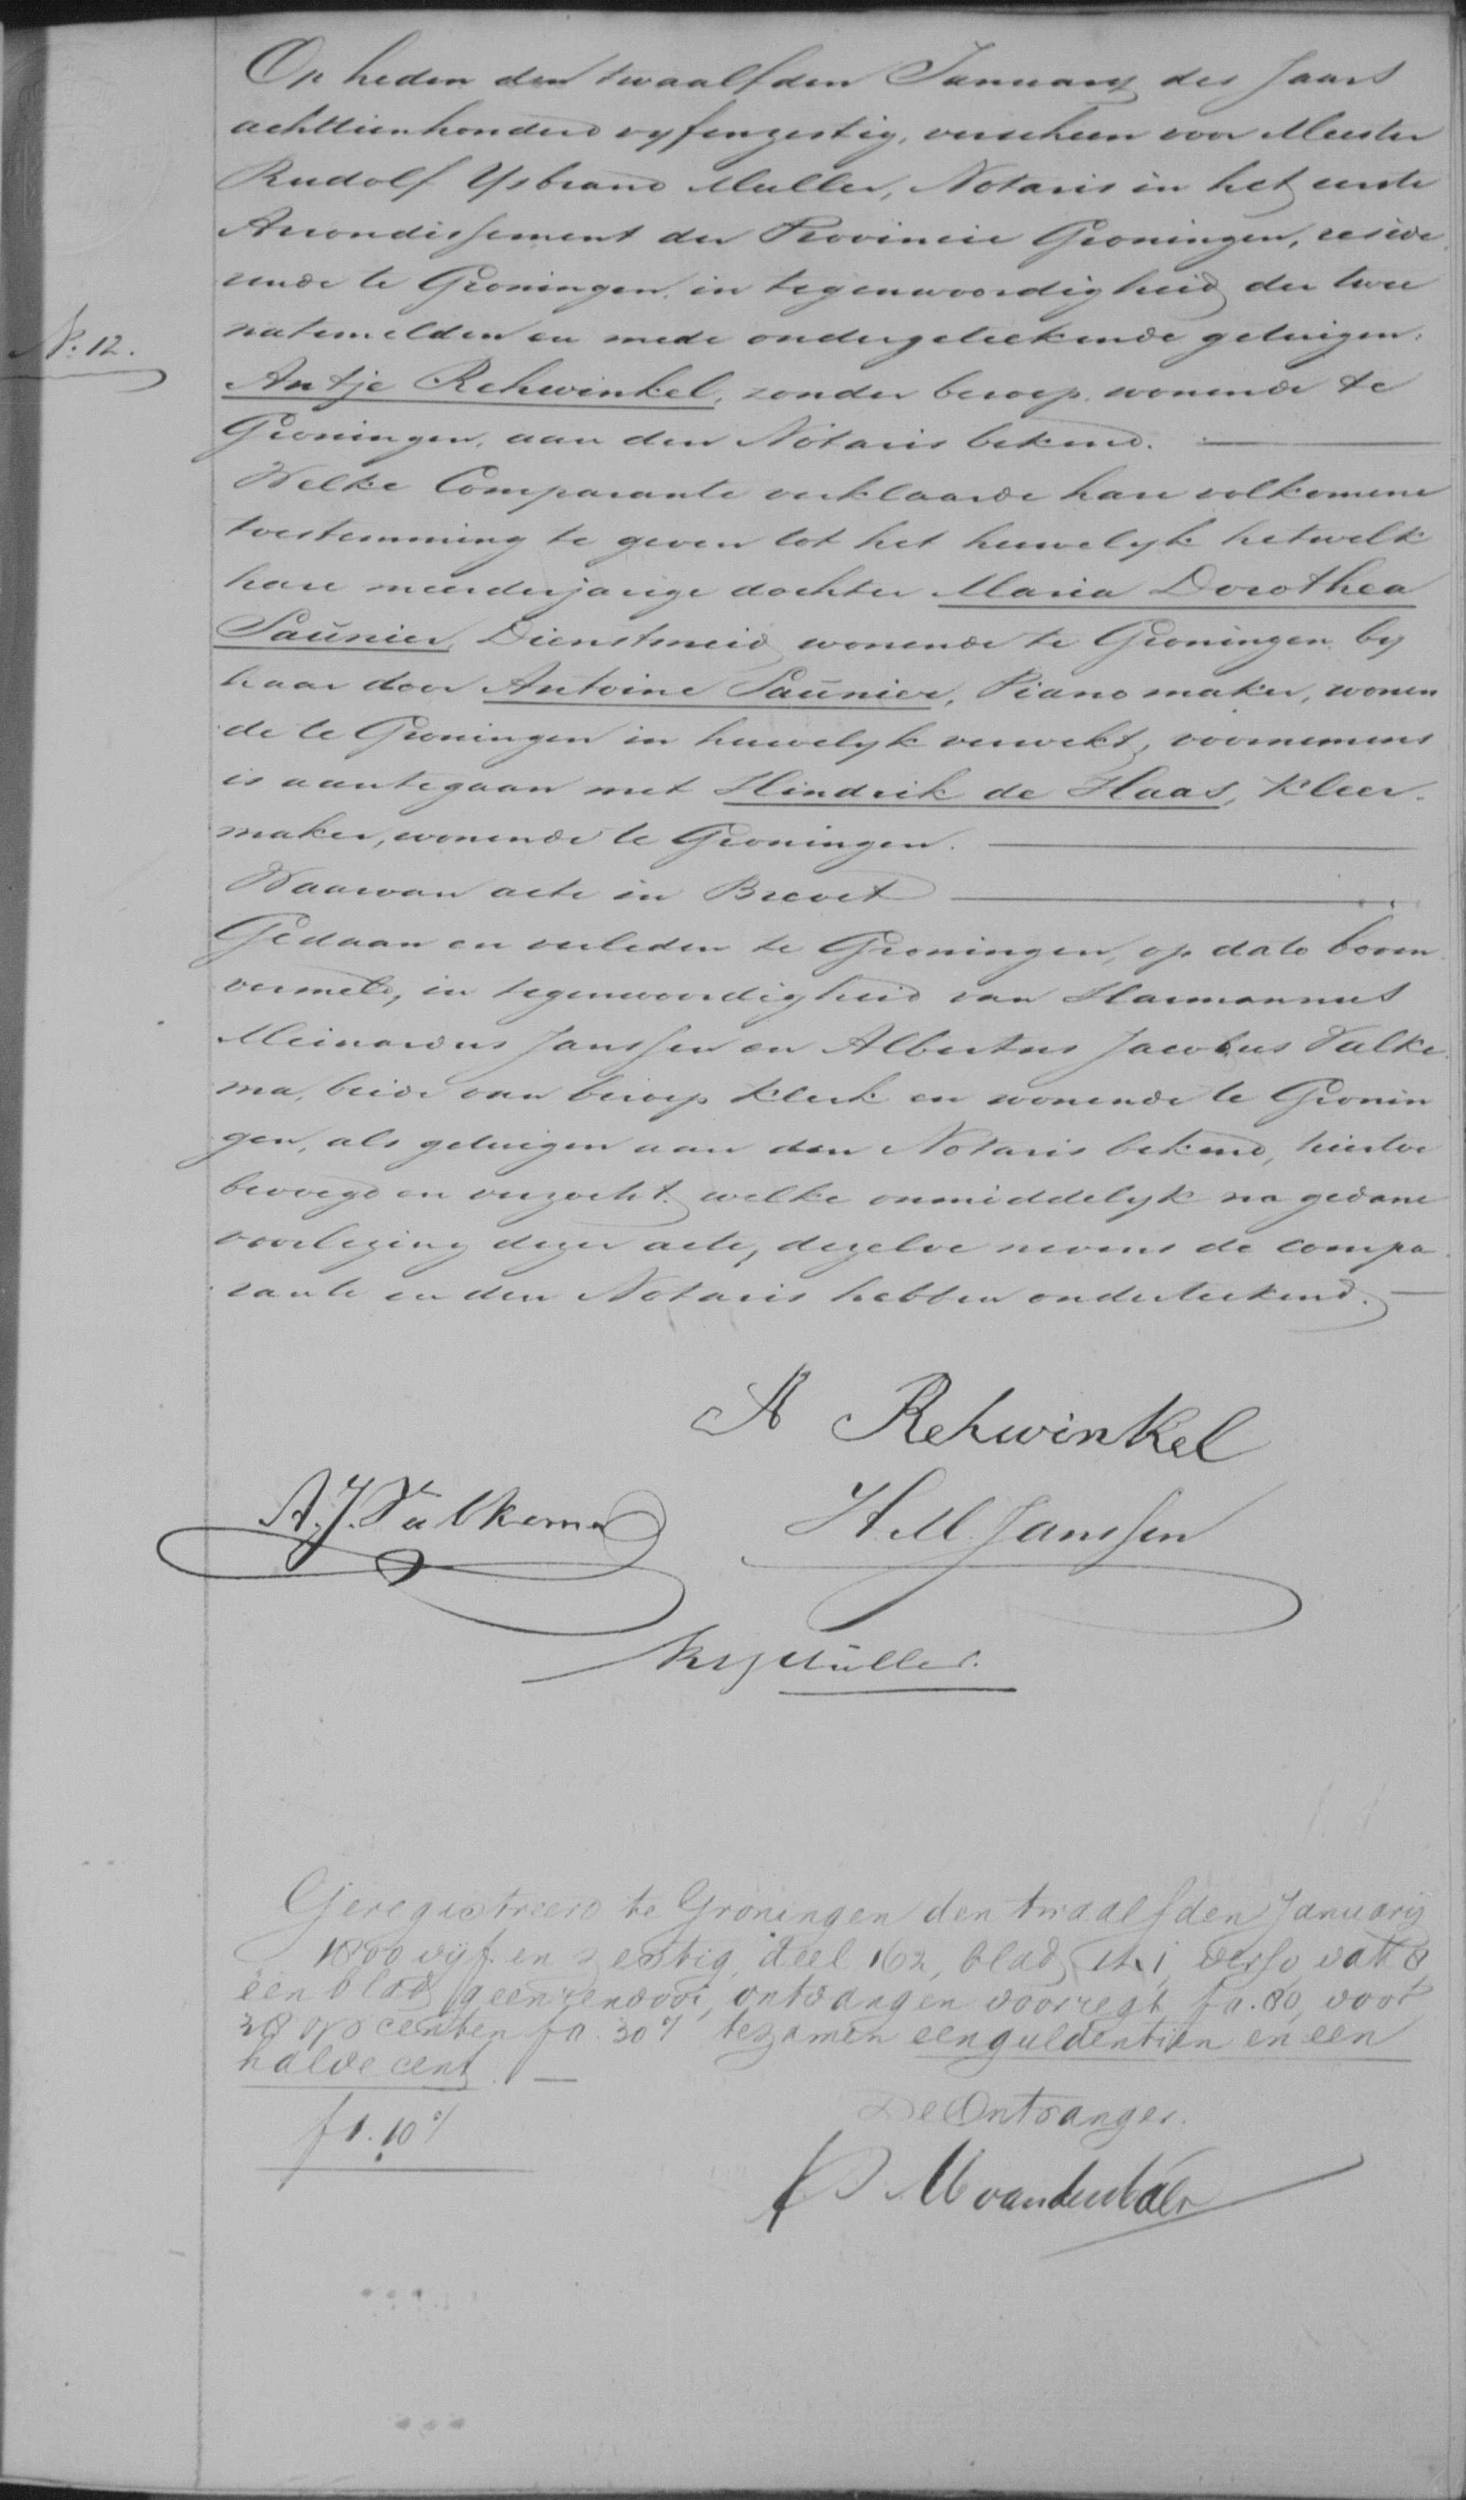 Op heden den twaalfden January des Jaars
achttienhonderd vyfenzestig, verscheen voor Meester
Rudolf Ysbrand Muller, Notaris in het eerste
Arrondissement der Provincie Groningen, reside
rende te Groningen, in tegenwoordigheid der twee
natemelden en mede ondergeteekende getuigen:
N:12.
Antje Rehwinkel, zonder beroep, wonende te
Groningen, aan den Notaris bekend.
Welke Comparante verklaarde hare volkomene
toestemming te geven tot het huwelyk hetwelk
hare meerderjarige dochter Maria Dorothea
Saünier, Dienstmeid, wonende te Groningen by
haar door Antoine Saünier, Piano maker, wonen
de te Groningen in huwelyk verwekt, voornemens
is aantegaan met Hindrik de Haas, Kleer-
maker, wonende te Groningen.
Waarvan acte in Brevet
Gedaan en verleden te Groningen, op dato boven
vermeld, in tegenwoordigheid van Harmannus
Meinardus Janssen en Albertus Jacobus Valke
ma, beide van beroep klerk en wonende te Gronin
gen, als getuigen aan den Notaris bekend, hiertoe
bevoegd en verzocht, welke onmiddelyk na gedane
voorlezing dezer acte, dezelve nevens de compa
rante en den Notaris hebben onderteekend.
A Rehwinkel
A. J. Valkema
H. M. Janssen
RYMüller.
Geregistreerd te Groningen den twaalfden Januarij
1800 vijf en zestig, deel 162, blad verso vak 8
een blad geen renvooi, ontvangen voor regt f 0.80, voor
38 opcenten f 0.30⁵ tezamen een gulden tien en een
halve cent.
f 1.10⁵
De Ontvanger.